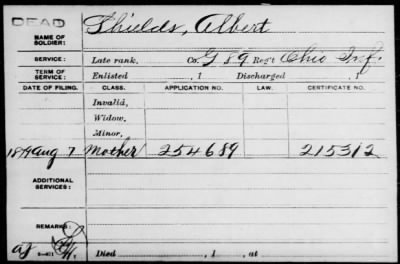 DEAD
NAME OF SOLDIER: Shields, Albert
SERVICE: Late rank, Co. G 89 Reg't Ohio Inf.
TERM OF SERVICE: Enlisted , 1 Discharged , 1
DATE OF FILING. CLASS. APPLICATION NO. LAW. CERTIFICATE NO.
Invalid,
Widow,
Minor,
1879 Aug 7 Mother 254689 215312
ADDITIONAL SERVICES:
REMARKS:
3—431 Died , 1 , at